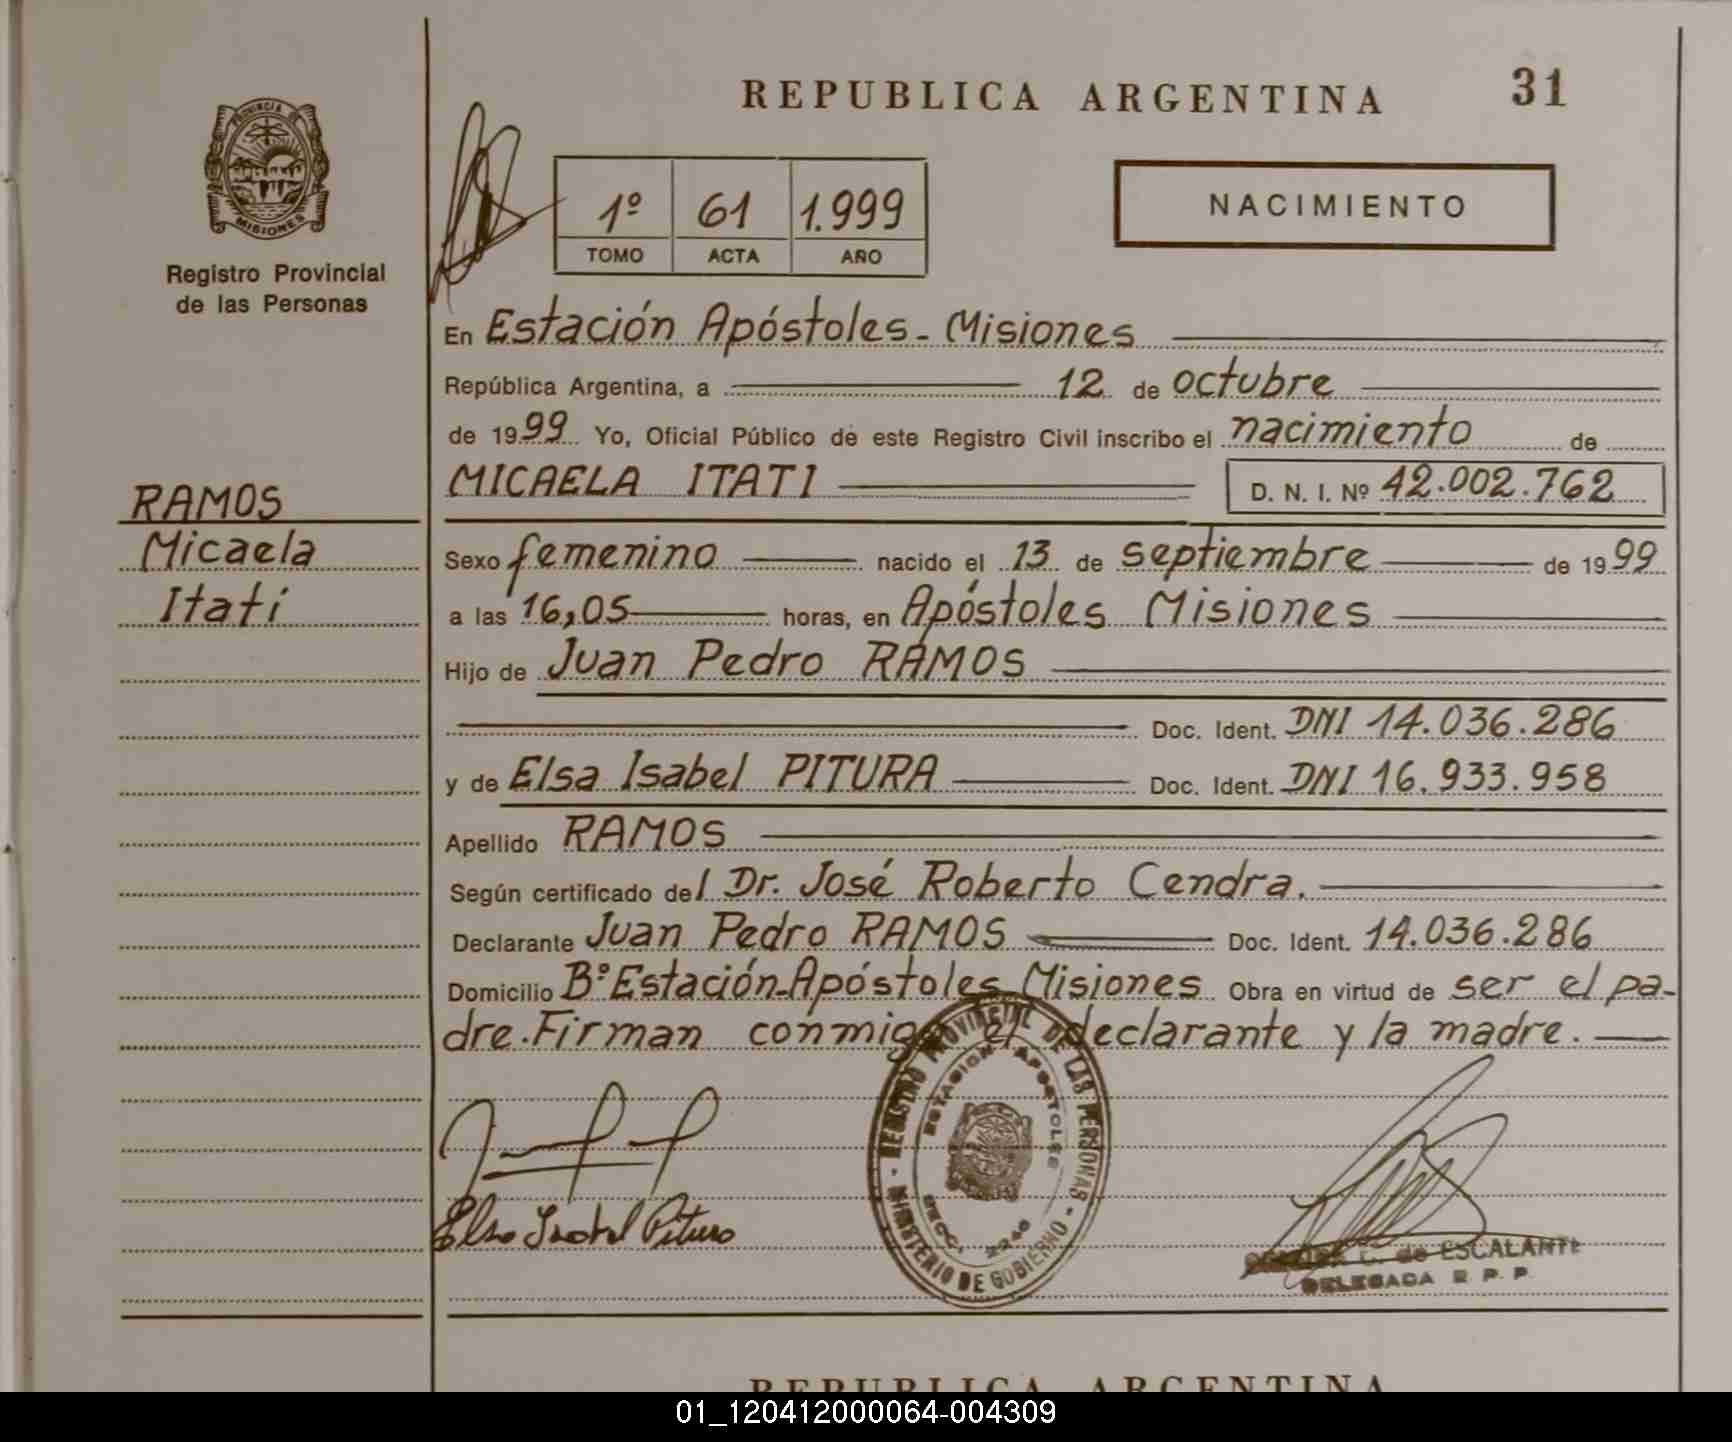 REPUBLICA ARGENTINA 31
PROVINCIA DE
MISIONES
Registro Provincial
de las Personas
1º 61 1.999
TOMO ACTA AÑO
NACIMIENTO
En Estación Apóstoles - Misiones
República Argentina, a 12 de octubre
de 1999 Yo, Oficial Público de este Registro Civil inscribo el nacimiento de
MICAELA ITATI D. N. I. Nº 42.002.762
RAMOS
Micaela
Itatí
Sexo femenino nacido el 13 de septiembre de 1999
a las 16,05 horas, en Apóstoles Misiones
Hijo de Juan Pedro RAMOS
Doc. Ident. DNI 14.036.286
y de Elsa Isabel PITURA Doc. Ident. DNI 16.933.958
Apellido RAMOS
Según certificado del Dr. José Roberto Cendra.
Declarante Juan Pedro RAMOS Doc. Ident. 14.036.286
Domicilio Bº Estación-Apóstoles Misiones Obra en virtud de ser el pa-
dre. Firman conmigo el declarante y la madre.
REGISTRO PROVINCIAL DE LAS PERSONAS
ESTACION APOSTOLES
SECC. 2240
MINISTERIO DE GOBIERNO
Elsa Isabel Pitura
C. de ESCALANTE
DELEGADA R. P. P.
REPUBLICA ARGENTINA
01_120412000064-004309